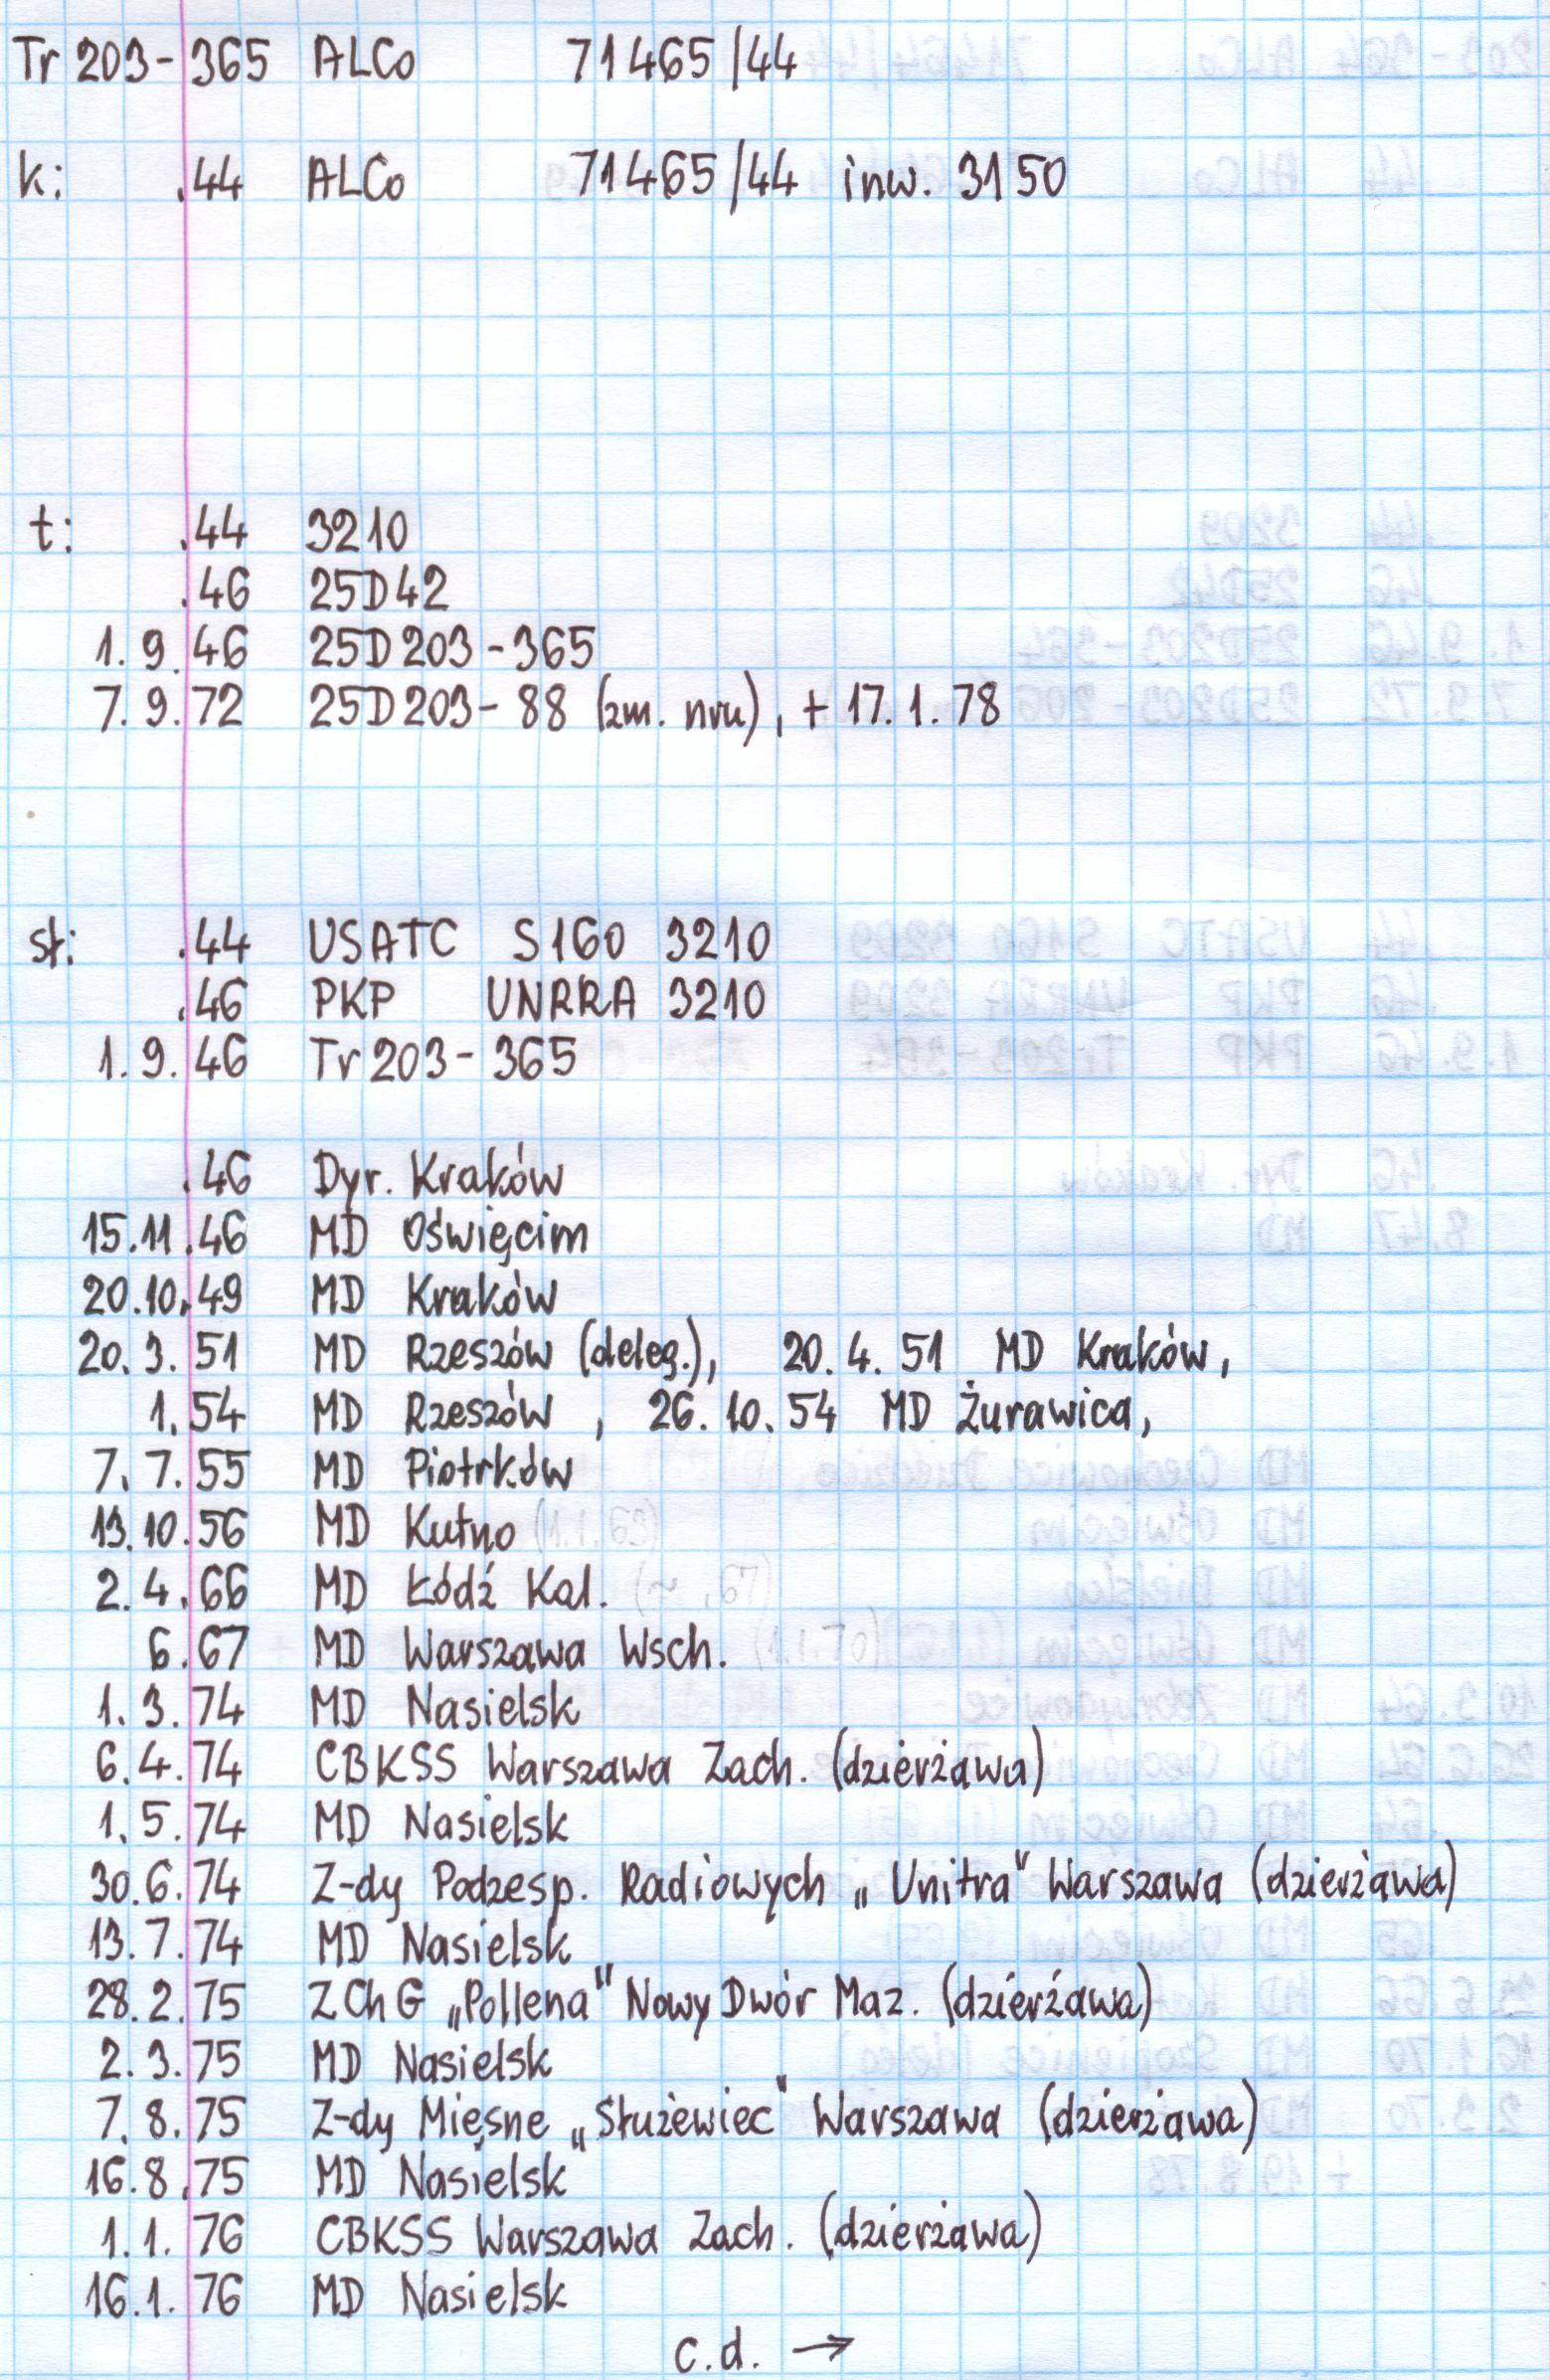 Tr 203-365 ALCo 71465/44
k: .44 ALCo 71465/44 inw. 3150
t: .44 3210
.46 25D42
1.9.46 25D203-365
7.9.72 25D203-88 (zm. nru), + 17.1.78
st: .44 USATC S160 3210
.46 PKP UNRRA 3210
1.9.46 Tr203-365
.46 Dyr. Kraków
15.11.46 MD Oświęcim
20.10.49 MD Kraków
20.3.51 MD Rzeszów (deleg.), 20.4.51 MD Kraków,
1.54 MD Rzeszów , 26.10.54 MD Żurawica,
7.7.55 MD Piotrków
13.10.56 MD Kutno
2.4.66 MD Łódź Kal.
6.67 MD Warszawa Wsch.
1.3.74 MD Nasielsk
6.4.74 CBKSS Warszawa Zach. (dzierżawa)
1.5.74 MD Nasielsk
30.6.74 Z-dy Podzesp. Radiowych „Unitra" Warszawa (dzierżawa)
13.7.74 MD Nasielsk
28.2.75 ZChG „Pollena" Nowy Dwór Maz. (dzierżawa)
2.3.75 MD Nasielsk
7.8.75 Z-dy Mięsne „Służewiec" Warszawa (dzierżawa)
16.8.75 MD Nasielsk
1.1.76 CBKSS Warszawa Zach. (dzierżawa)
16.1.76 MD Nasielsk
c.d. →